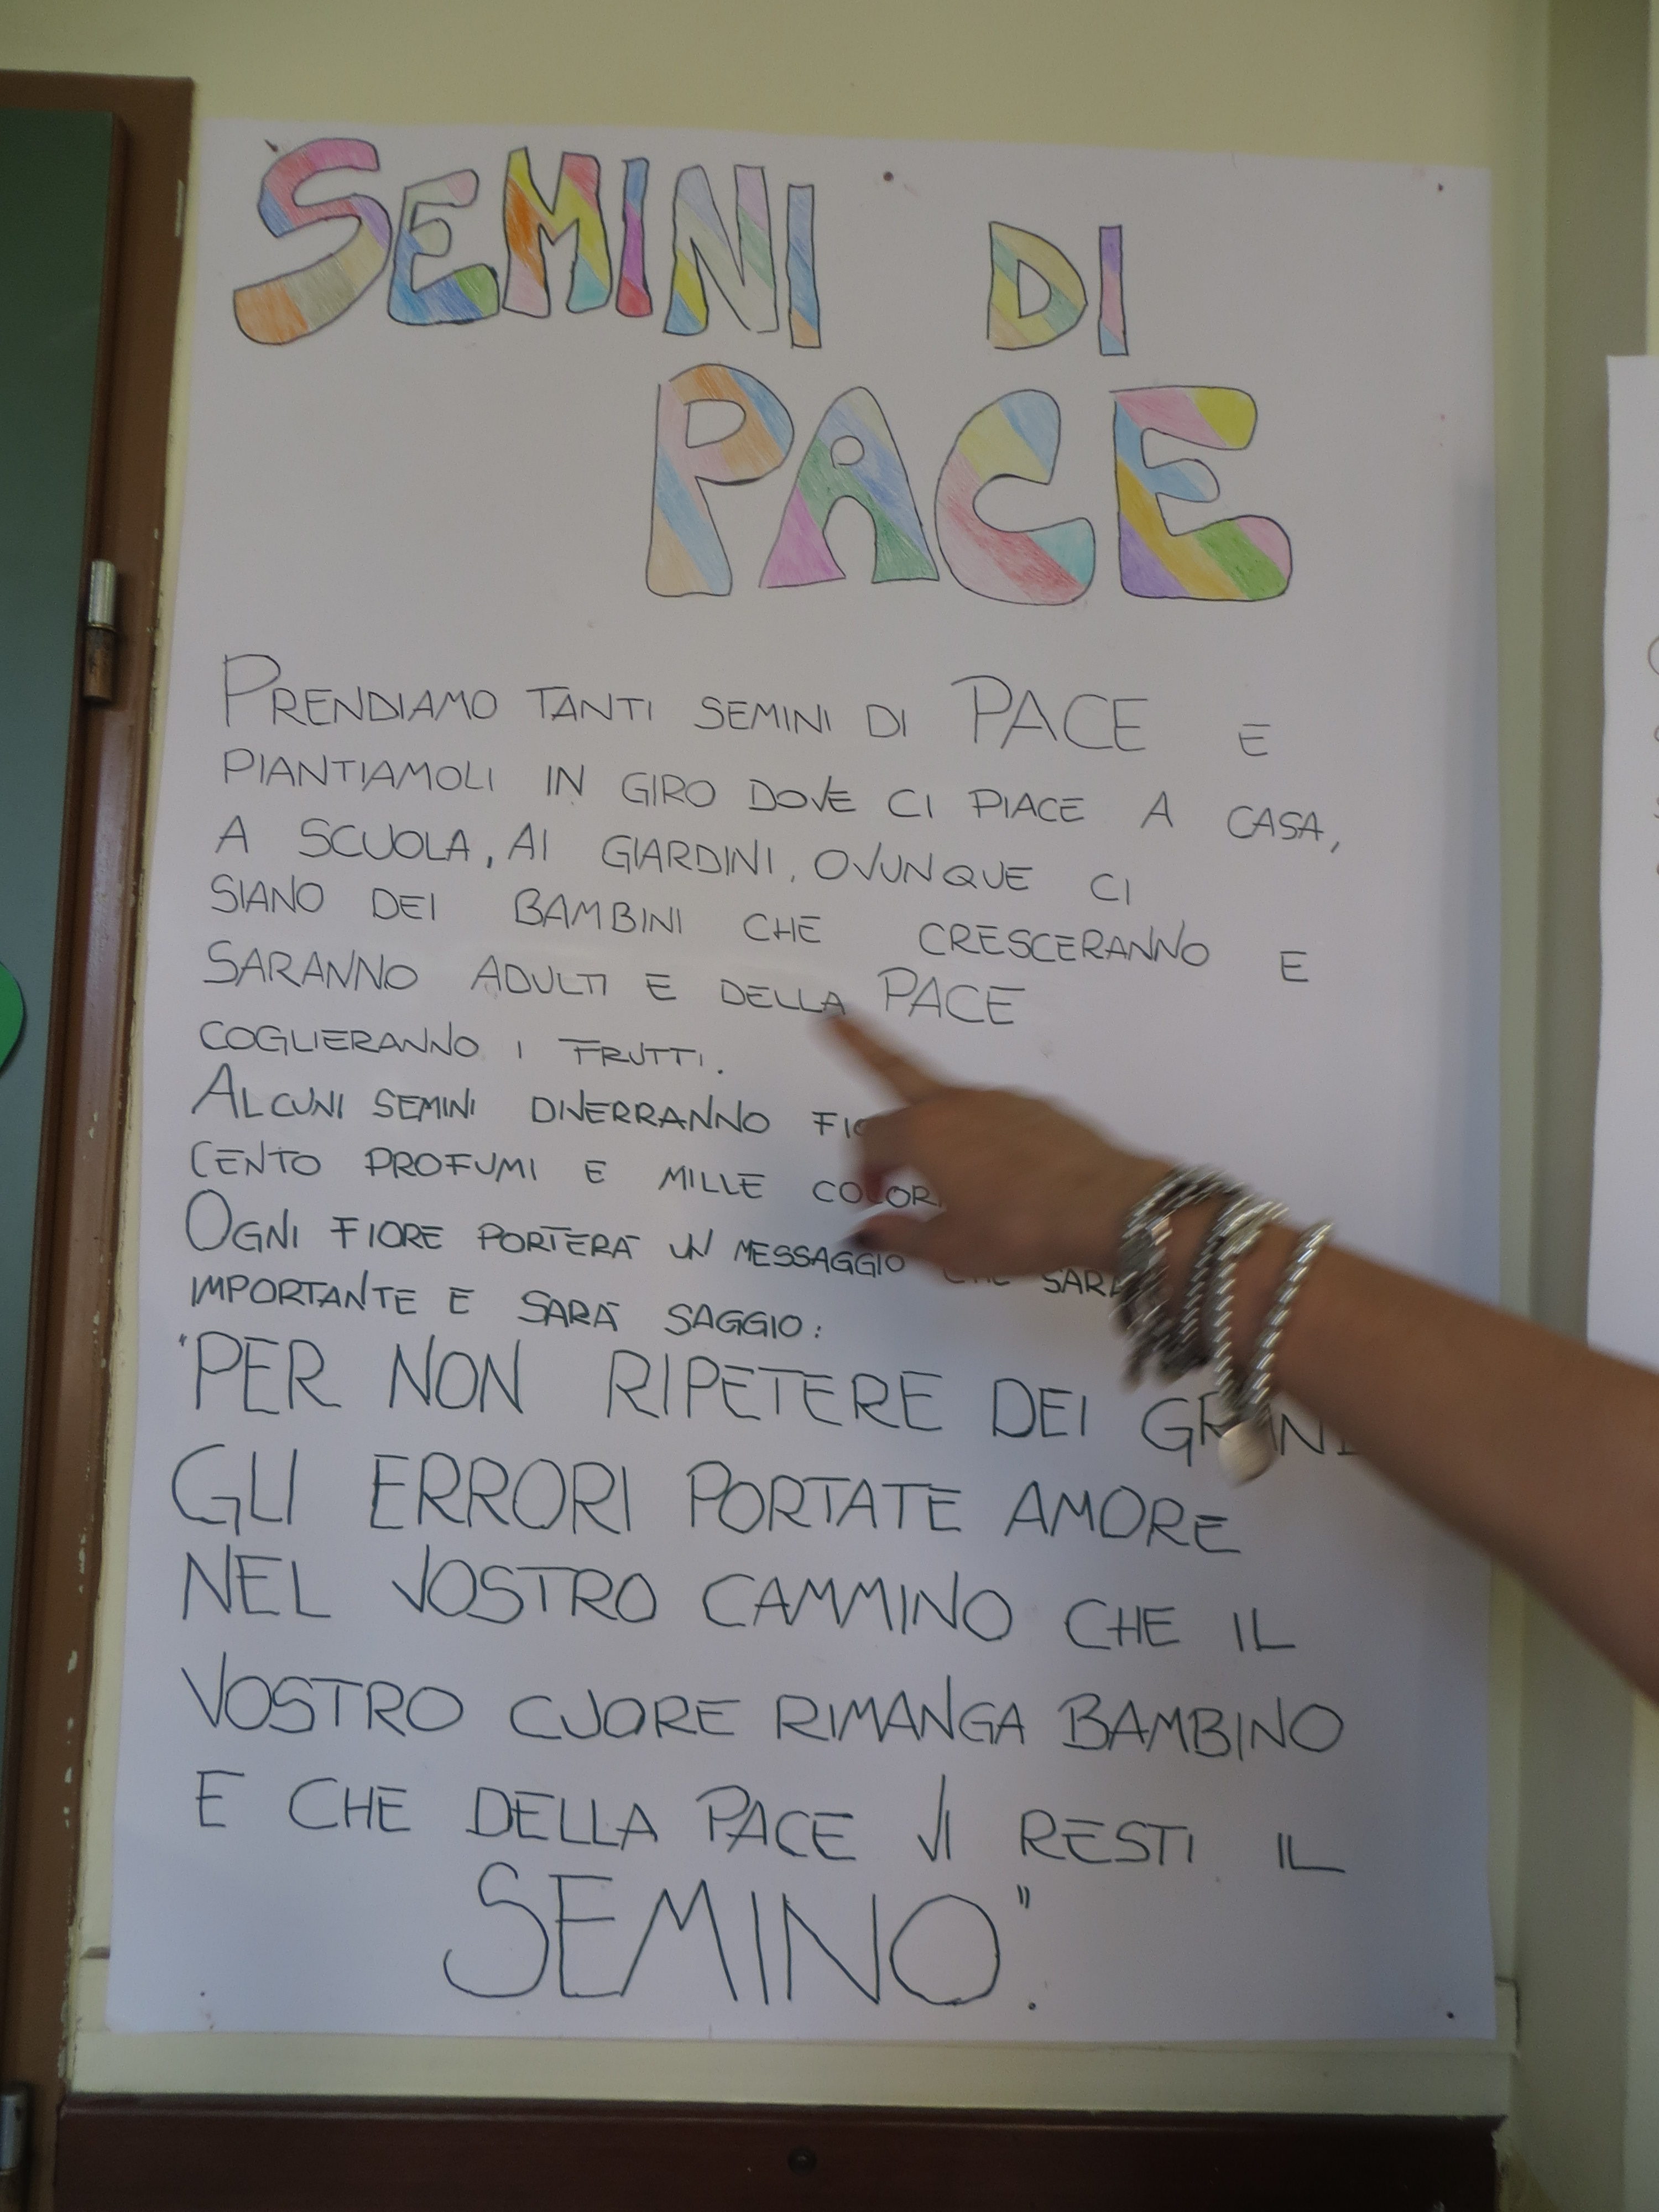 SEMINI DI
PACE
PRENDIAMO TANTI SEMINI DI PACE E
PIANTIAMOLI IN GIRO DOVE CI PIACE A CASA,
A SCUOLA, AI GIARDINI, OVUNQUE CI
SIANO DEI BAMBINI CHE CRESCERANNO E
SARANNO ADULTI E DELLA PACE
COGLIERANNO I FRUTTI.
ALCUNI SEMINI DIVERRANNO
CENTO PROFUMI E MILLE COLORI
OGNI FIORE PORTERÀ UN MESSAGGIO CHE SARÀ
IMPORTANTE E SARÀ SAGGIO:
"PER NON RIPETERE DEI GRANDI
GLI ERRORI PORTATE AMORE
NEL VOSTRO CAMMINO CHE IL
VOSTRO CUORE RIMANGA BAMBINO
E CHE DELLA PACE VI RESTI IL
SEMINO".